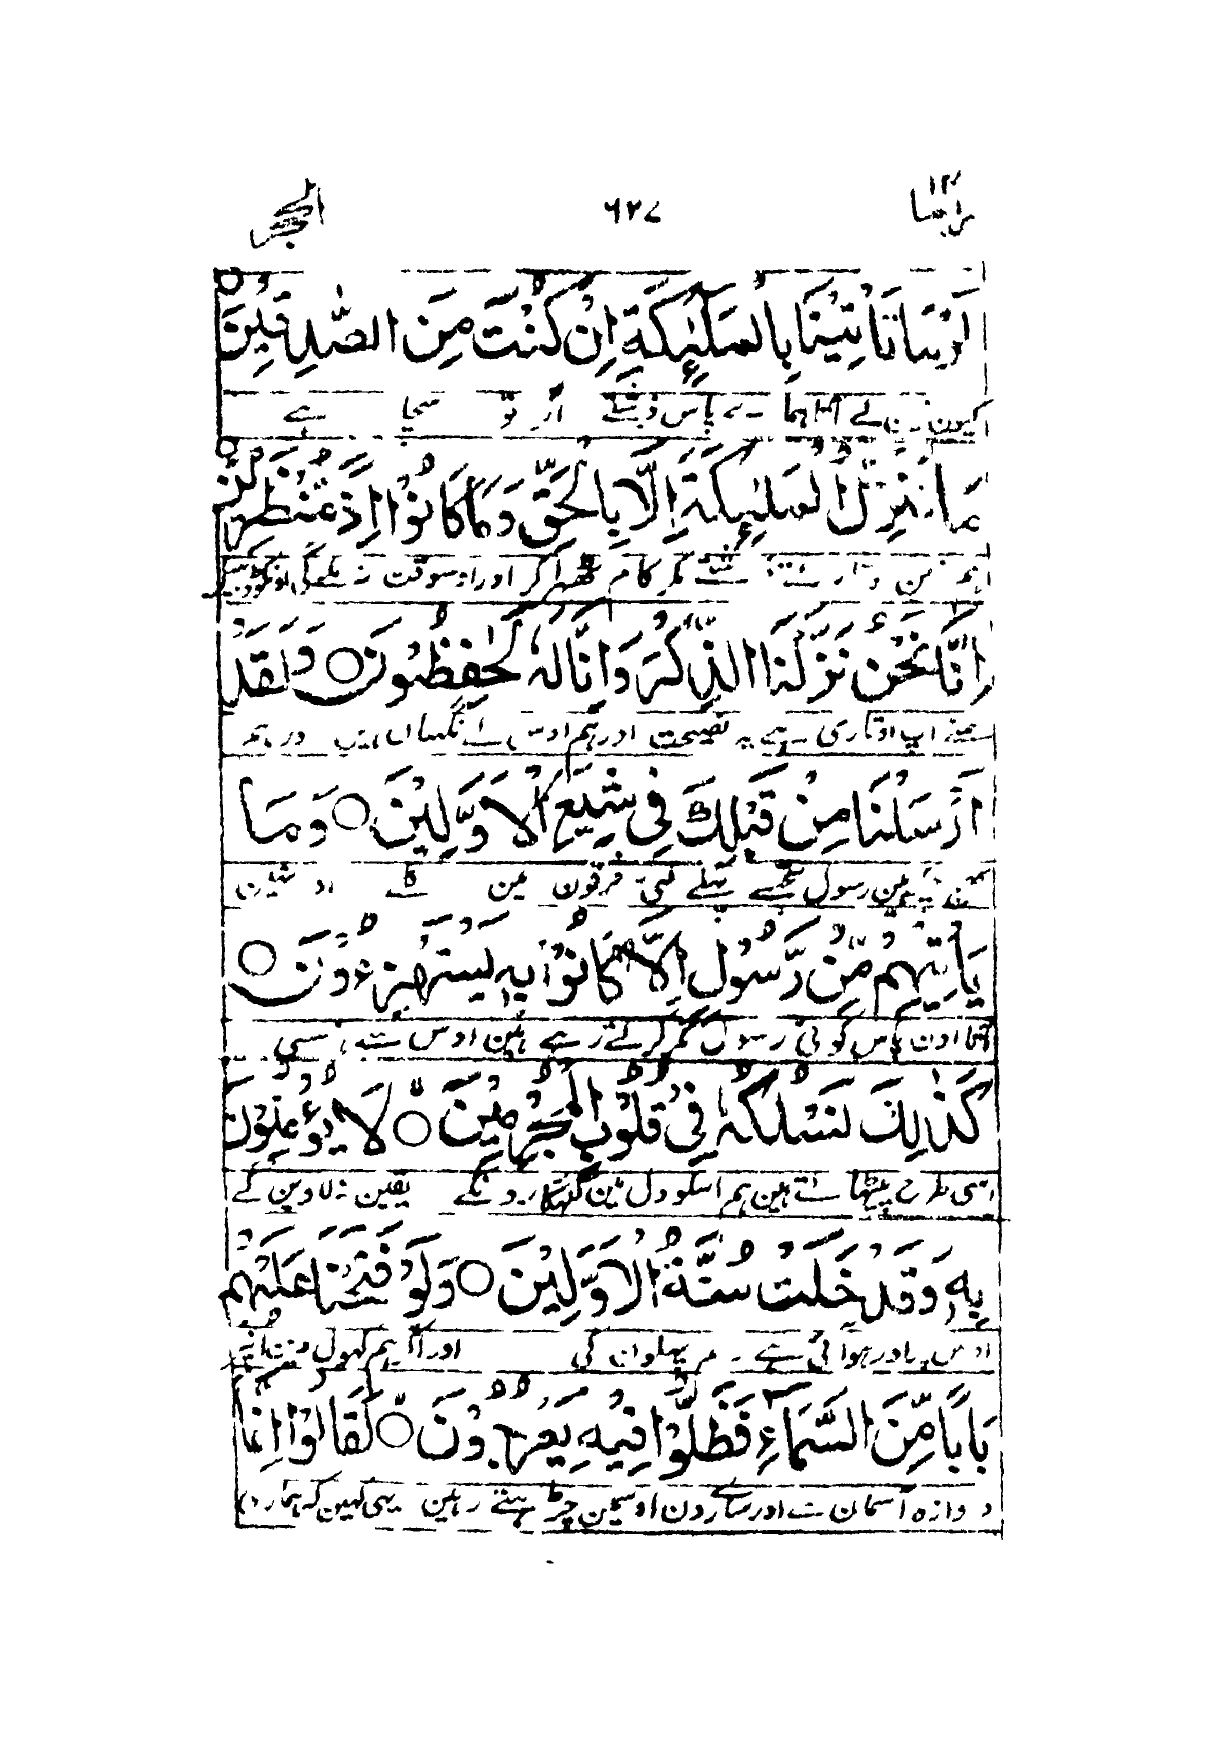 الحجر ٦٢٧ ربما ١٤
لَوْ مَا تَأْتِيْنَا بِالْمَلٰٓئِكَةِ اِنْ كُنْتَ مِنَ الصّٰدِقِيْنَ
کیون پاس فرشتے اگر تو سچا ہے
مَا نُنَزِّلُ الْمَلٰٓئِكَةَ اِلَّا بِالْحَقِّ وَمَا كَانُوْا اِذًا مُّنْظَرِيْنَ
ہم فرشتے مگر کام ٹھہرا کر اور اوسوقت نہ ملےگی
اِنَّا نَحْنُ نَزَّلْنَا الذِّكْرَ وَاِنَّا لَهٗ لَحٰفِظُوْنَ ○ وَلَقَدْ
ہمنے آپ اوتاری ہے یہ نصیحت اور ہم اوس کے نگہبان ہین اور ہم
اَرْسَلْنَا مِنْ قَبْلِكَ فِيْ شِيَعِ الْاَوَّلِيْنَ ○ وَمَا
رسول تجھسے پہلے کئی فرقون مین اگلے اور نہین
يَاْتِيْهِمْ مِّنْ رَّسُوْلٍ اِلَّا كَانُوْا بِهٖ يَسْتَهْزِءُوْنَ ○
آتا اون پاس کوئی رسول مگر کرتے رہے ہین اوس سے ہنسی
كَذٰلِكَ نَسْلُكُهٗ فِيْ قُلُوْبِ الْمُجْرِمِيْنَ ○ لَا يُؤْمِنُوْنَ
اسی طرح پیٹھاتے ہین ہم اسکو دل مین گنہگارونکے یقین نہ لاوین گے
بِهٖ وَقَدْ خَلَتْ سُنَّةُ الْاَوَّلِيْنَ ○ وَلَوْ فَتَحْنَا عَلَيْهِمْ
اوس پر اور ہوآئی ہے رسم پہلون کی اور اگر ہم کھول دین
بَابًا مِّنَ السَّمَآءِ فَظَلُّوْا فِيْهِ يَعْرُجُوْنَ ○ لَقَالُوْا اِنَّمَا
دروازہ آسمان سے اور سارے دن اوسمین چڑہتے رہین یہی کہین کہ ہماری